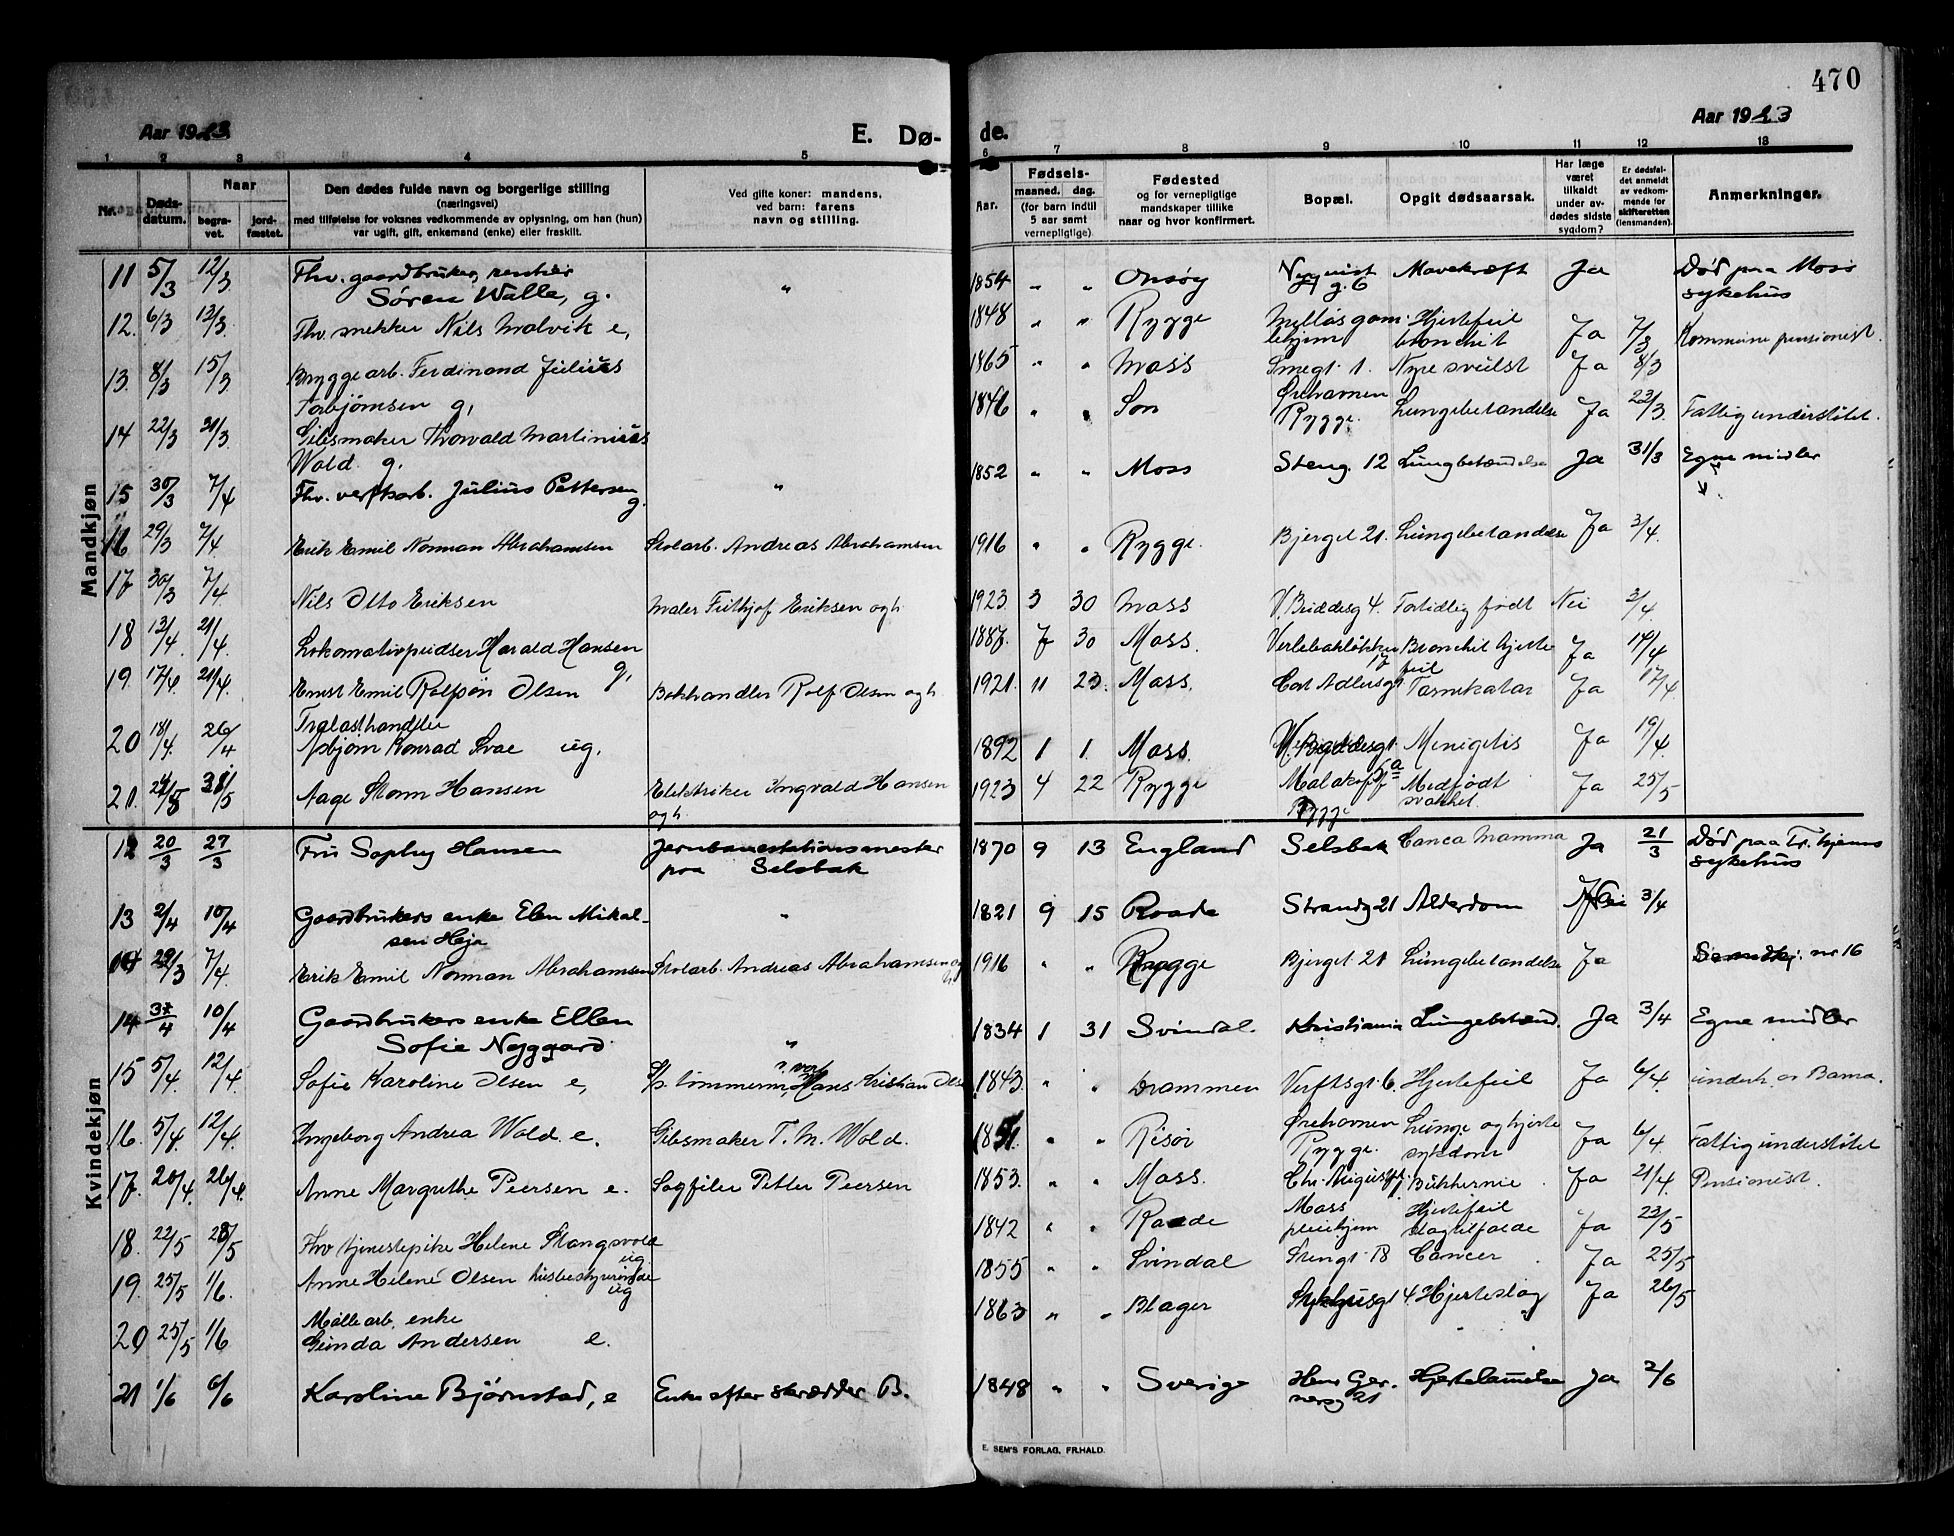 470
Aar 1923
E. Dø-
de.
Aar 1923
1 2 3 4 5
6 7 8 9 10 11 12 13
Nr.
Døds-
datum.
Naar
begra-
vet.
jord-
fæstet.
Den dødes fulde navn og borgerlige stilling
(næringsvei)
med tilføielse for voksnes vedkommende av oplysning, om han (hun)
var ugift, gift, enkemand (enke) eller fraskilt.
Ved gifte koner: mandens,
ved barn: farens
navn og stilling.
Aar.
Fødsels-
maaned. dag.
(for barn indtil
5 aar samt
vernepligtige).
Fødested
og for vernepligtige
mandskaper tillike
naar og hvor konfirmert.
Bopæl.
Opgit dødsaarsak.
Har læge
været
tilkaldt
under av-
dødes sidste
sygdom?
Er dødsfal-
det anmeldt
av vedkom-
mende for
skifteretten
(lensmanden).
Anmerkninger.
Mandkjøn
11 5/3 12/3 Fhv. gaardbruker, rentier
Søren Walle, g. " 1854 " " Onsøy g. 6 Mavekræft Ja Død paa Moss
sykehus
12. 6/3 13/3 Fhv. snekker Nils Malvik e, 1848 " " Rygge Hjertefeil
bronchit Ja 7/3 Kommune pensionist.
13. 8/3 15/3 Bryggearb. Ferdinand Julius
Torbjørnsen g, 1865 " " Moss Smegt. 1. Nyresvulst Ja 8/3
14 22/3 Gibsmaker Thorvald Martinius
Wold g, 1846 " " Son Ørehavnen
Rygge. Lungebetændelse Ja 22/3. Fattigunderstøtet.
15 30/3 7/4 Fhv. verftsarb. Julius Pettersen
g. " 1852 " " Moss Steng. 12 Lungbetændelse Ja 31/3 Egne midler
16 29/3 7/4 Erik Emil Norman Abrahamsen Stolarb. Andreas Abrahamsen 1916 " " Rygge. Bjerget 21. Lungebetændelse Ja 3/4.
17 30/3 7/4 Nils Otto Eriksen Maler Frithjof Eriksen ogh. 1923 3 30 Moss V. Briddesg 4. Fortidlig født Nei 3/4.
18 13/4. 21/4. Lokomotivpudser Harald Hansen
g, 1887. 7 30 Moss. Bronchit hjerte
feil Ja 14/4
19. 17/4. 21/4. Ernst Emil Rolfsøn Olsen Bokhandler Rolf Olsen ogh. 1921. 11 23. Moss. Tarmkatar Ja 17/4
20 18/4. 26/4 Trælasthandler
Asbjørn Konrad Svae ug. 1892 1 1. Moss Menigetis Ja 19/4.
21. Aage Storm Hansen Elektriker Ingvald Hansen
ogh. 1923 4 22 Rygge Malakoff
Rygge Medfødt
svakhet. Ja 25/5
Kvindekjøn
12 20/3 27/3 Fru Sophy Hansen Jernbanestationsmester
paa Selsbak 1870 9 13 England Selsbak Canca Mamma Ja 21/3 Død paa Tr.hjems
sykehus
13 2/4 10/4 Gaardbrukers enke Elen Mikal-
sen Heja " 1821 9 15 Raade Strandg 21 Alderdom Nei 3/4
29/3 7/4 Erik Emil Norman Abrahamsen Stolarb. Andreas Abrahamsen og
h. 1916 " " Rygge Bjerget 21 Lungebetændelse Ja nr 16
14 10/4 Gaardbrukers enke Ellen
Sofie Nyggard " 1834 1 31 Svindal. Kristiania Lungebetænd. Ja 3/4 Egne midler
15 5/4. 12/4. Sofie Karoline Olsen e, Hans Kristian Olsen 1843. " " Drammen Verftsgt. 6. Hjertefeil Ja 6/4.
16. 5/4. 12/4. Ingeborg Andrea Wold e. Gibsmaker T. M. Wold. " " Risør Ørehavnen
Rygge. Lunge og hjerte
sykdom Ja 6/4. Fattigunderstøtet
17. 20/4. 26/4. Anne Margrethe Peersen e. Sagfiler Petter Peersen 1853. " " Moss. Ja 21/4. Pensionist.
18. 22/5 28/5 Fhv tjenestepike Helene Stangsvold
ug 1842 " " Raade Moss
pleiehjem Hjertefeil
slagtilfælde Ja 23/5
19. 25/5 1/6. Anne Helene Olsen husbestyrerinde
ug 1855 " " Svindal Cancer Ja 25/5
20 25/5 1/6 Møllearb. enke
Gunda Andersen e. 1863 " " Blager Sykhusgt 4. Hjerteslag Ja 26/5
21 1/6 6/6 Karoline Bjørnstad, e Enke efter skrædder B. 1848 " " Sverige Henr Ger-
nersg 21 Hjertelammelse Ja 2/6
E. SEM'S FORLAG, FR.HALD.